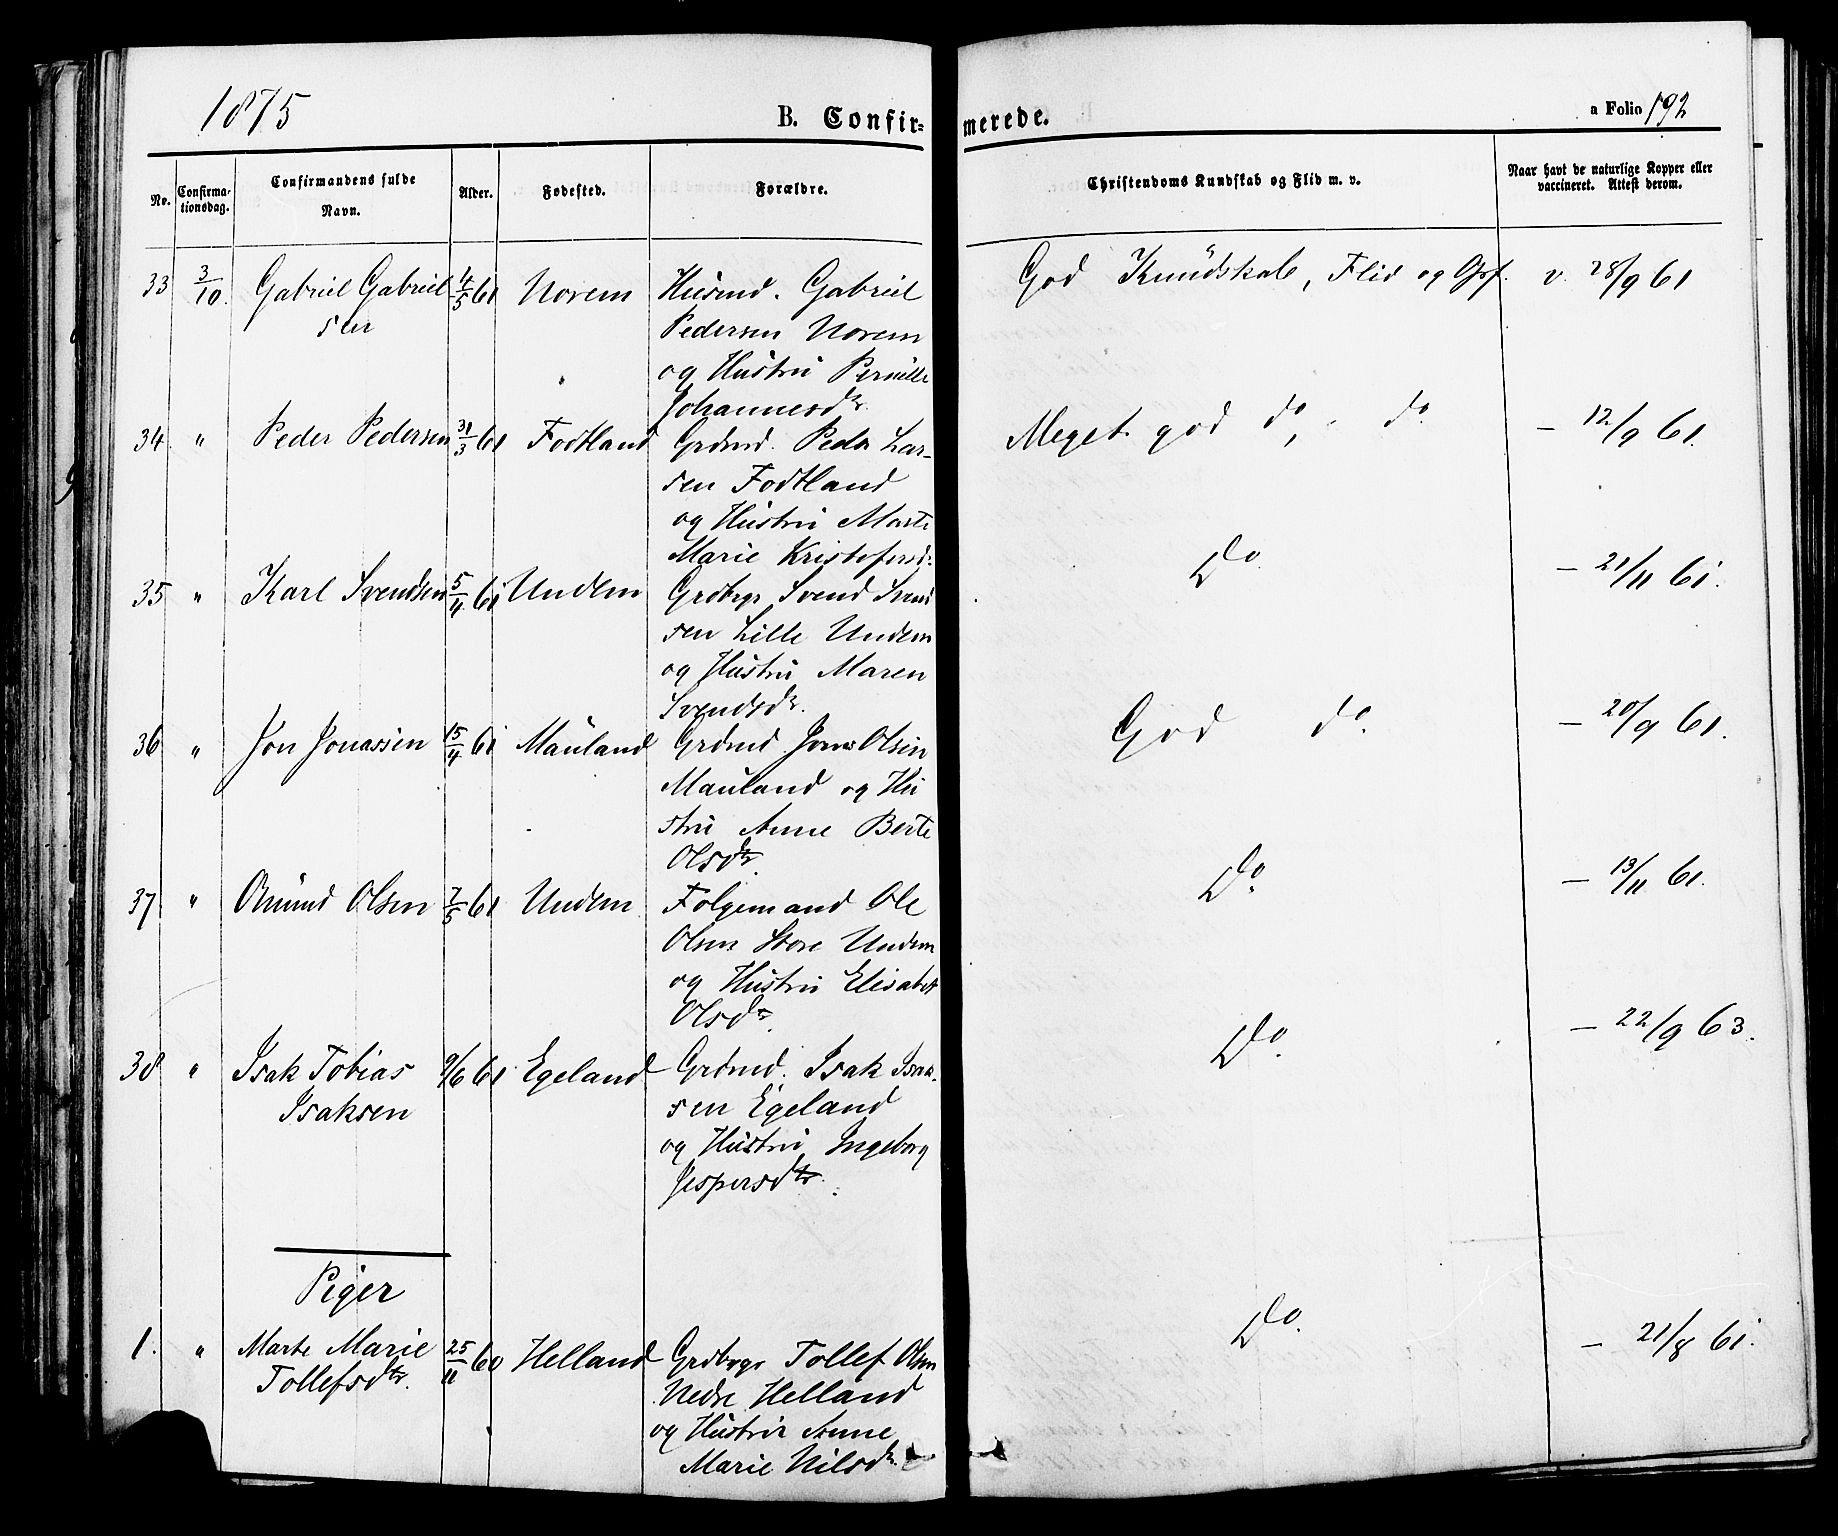 1875
B. Confir-
merede.
a Folio 192
No.
Confirma-
tionsdag.
Confirmandens fulde
Navn.
Alder.
Fødested.
Forældre.
Christendoms Kundskab og Flid m. v.
Naar havt de naturlige Kopper eller
vaccineret. Attest derom.
33 3/10. Gabriel Gabriel 4/5 61 Norem Husmd. Gabriel God Kundskab, Flid og v. 28/9 61
sen Pedersen Norem
og Hustru Pernille
Johannesdr.
34 " Peder Pedersen 31/3 61 Fodtland Grdmd. Peder Lar- Meget god do, do - 12/9 61.
sen Fodtland
og Hustru Marte
Marie Kristofersd:
35 " Karl Svendsen 5/4 61 Undem Grdbrgr Svend Svend Do - 21/11 61.
sen Lille Undem
og Hustru Maren
Svendsdr.
36 " Jon Jonassen 15/4 61 Mauland Grdmd Jonas Olsen God do. - 20/9 61.
Mauland og Hu
stru Anne Berte
Olsdtr.
37 " Omund Olsen 7/5 61 Undem Folgemand Ole Do. - 13/11 61.
Olsen Store Undem
og Hustru Elisabet
Olsdr.
38 " Isak Tobias 9/6 61 Egeland Grdmd. Isak Isak- Do. - 22/9 63.
Isaksen sen Egeland
og Hustru Ingeborg
Jespersdtr.
Piger
1. " Marte Marie 25/11 60 Helland Grdbrgr Tollef Olsen Do. - 21/8 61.
Tollefsdtr. Nedre Helland
og Hustru Anne
Marie Nilsdr.